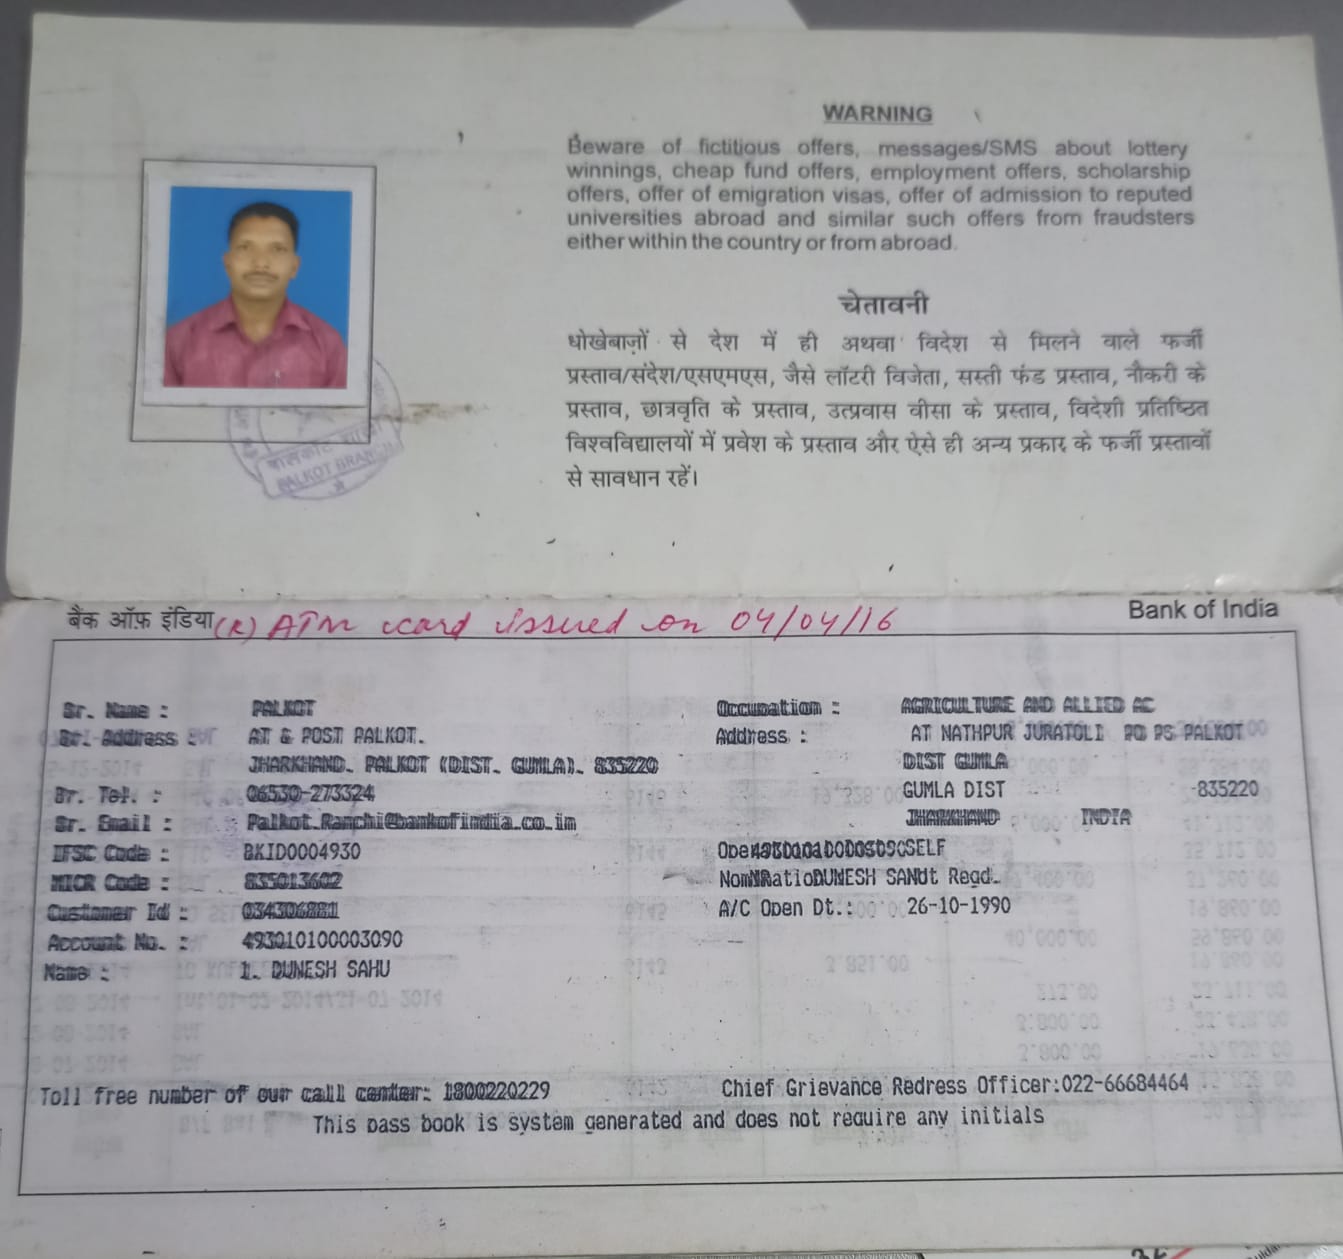 WARNING
Beware of fictitious offers, messages/SMS about lottery
winnings, cheap fund offers, employment offers, scholarship
offers, offer of emigration visas, offer of admission to reputed
universities abroad and similar such offers from fraudsters
either within the country or from abroad.
चेतावनी
धोखेबाज़ों से देश में ही अथवा विदेश से मिलने वाले फर्जी
प्रस्ताव/संदेश/एसएमएस, जैसे लॉटरी विजेता, सस्ती फंड प्रस्ताव, नौकरी के
प्रस्ताव, छात्रवृति के प्रस्ताव, उत्प्रवास वीसा के प्रस्ताव, विदेशी प्रतिष्ठित
विश्वविद्यालयों में प्रवेश के प्रस्ताव और ऐसे ही अन्य प्रकार के फर्जी प्रस्तावों
से सावधान रहें।
PALKOT BRANCH
बैंक ऑफ़ इंडिया (R) ATM card issued on 04/04/16 Bank of India
Br. Name : PALKOT
Br. Address : AT & POST PALKOT.
JHARKHAND. PALKOT (DIST. GUMLA). 835220
Br. Tel. : 06530-273324
Br. Email : Palkot.Ranchi@bankofindia.co.in
IFSC Code : BKID0004930
MICR Code : 835013602
Customer Id : 034306881
Account No. : 493010100003090
Name : 1. DUNESH SAHU
Occupation : AGRICULTURE AND ALLIED AC
Address : AT NATHPUR JURATOLI PO PS PALKOT
DIST GUMLA
GUMLA DIST -835220
JHARKHAND INDIA
SELF
Regd.
A/C Open Dt.: 26-10-1990
Toll free number of our call center: 1800220229 Chief Grievance Redress Officer:022-66684464
This pass book is system generated and does not require any initials